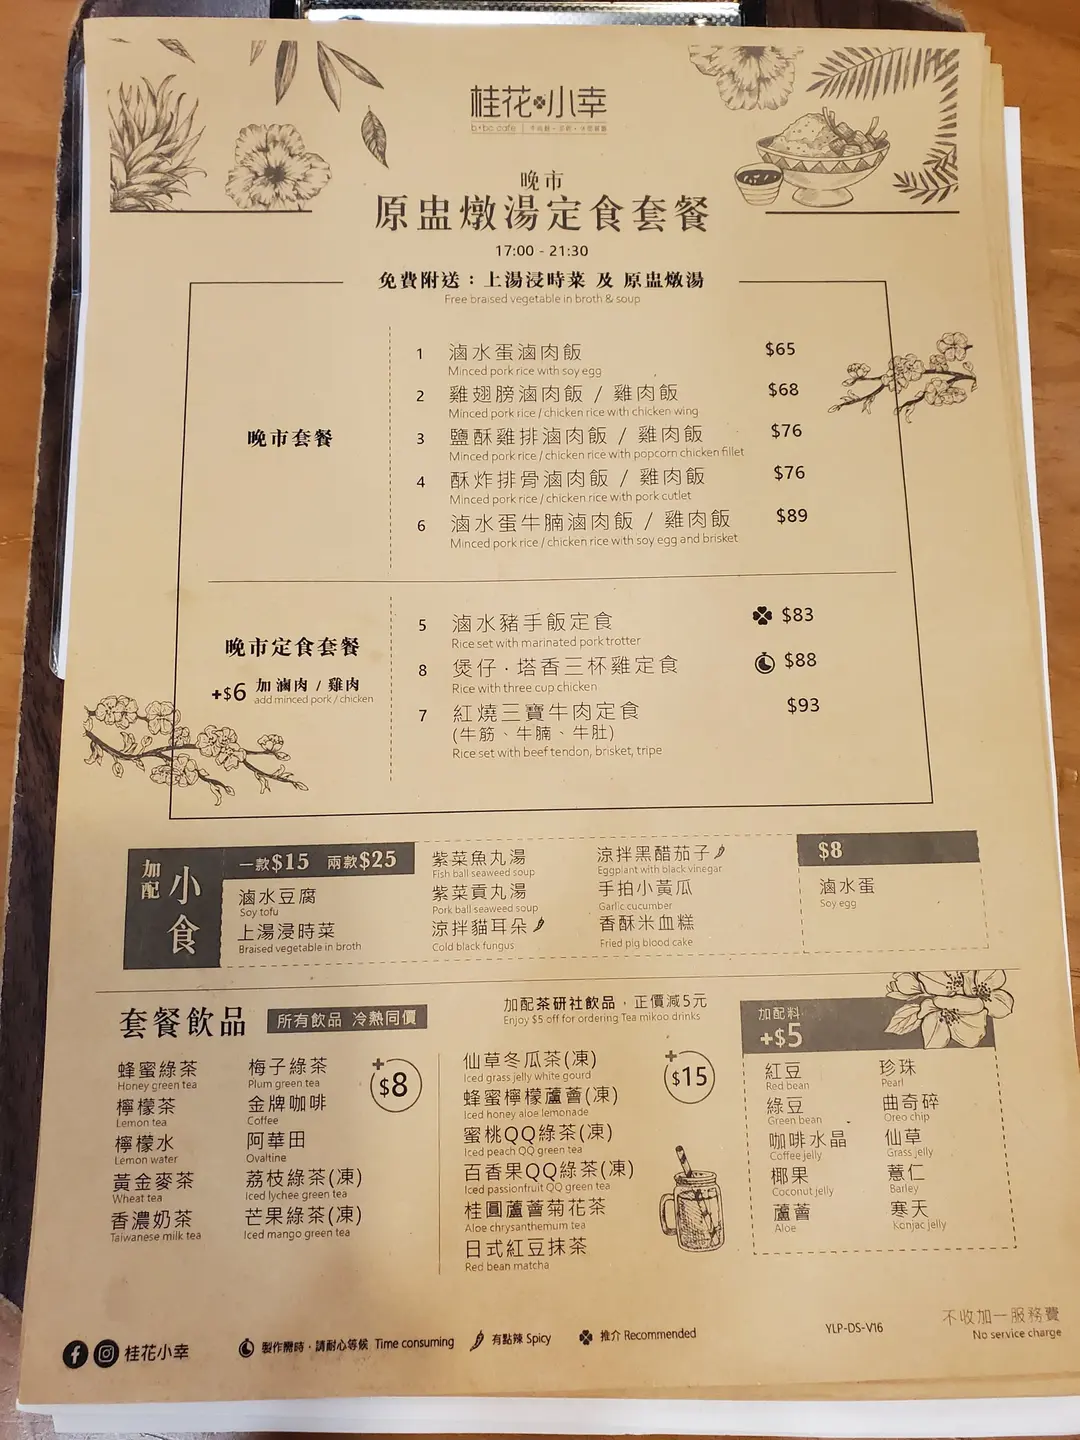 桂花小幸
b+bc cafe
晚市
原盅燉湯定食套餐
17:00 - 21:30
免費附送：上湯浸時菜 及 原盅燉湯
Free braised vegetable in broth & soup
晚市套餐
1 滷水蛋滷肉飯 $65
Minced pork rice with soy egg
2 雞翅膀滷肉飯 / 雞肉飯 $68
Minced pork rice / chicken rice with chicken wing
3 鹽酥雞排滷肉飯 / 雞肉飯 $76
Minced pork rice / chicken rice with popcorn chicken fillet
4 酥炸排骨滷肉飯 / 雞肉飯 $76
Minced pork rice / chicken rice with pork cutlet
6 滷水蛋牛腩滷肉飯 / 雞肉飯 $89
Minced pork rice / chicken rice with soy egg and brisket
晚市定食套餐
+$6 加滷肉 / 雞肉
add minced pork / chicken
5 滷水豬手飯定食 $83
Rice set with marinated pork trotter
8 煲仔·塔香三杯雞定食 $88
Rice with three cup chicken
7 紅燒三寶牛肉定食 $93
(牛筋、牛腩、牛肚)
Rice set with beef tendon, brisket, tripe
加配 小食
一款$15 兩款$25
滷水豆腐
Soy tofu
上湯浸時菜
Braised vegetable in broth
紫菜魚丸湯
Fish ball seaweed soup
紫菜貢丸湯
Pork ball seaweed soup
涼拌貓耳朵
Cold black fungus
涼拌黑醋茄子
Eggplant with black vinegar
手拍小黃瓜
Garlic cucumber
香酥米血糕
Fried pig blood cake
$8
滷水蛋
Soy egg
套餐飲品 所有飲品 冷熱同價
加配茶研社飲品，正價減5元
Enjoy $5 off for ordering Tea mikoo drinks
+$8
蜂蜜綠茶
Honey green tea
檸檬茶
Lemon tea
檸檬水
Lemon water
黃金麥茶
Wheat tea
香濃奶茶
Taiwanese milk tea
梅子綠茶
Plum green tea
金牌咖啡
Coffee
阿華田
Ovaltine
荔枝綠茶(凍)
Iced lychee green tea
芒果綠茶(凍)
Iced mango green tea
+$15
仙草冬瓜茶(凍)
Iced grass jelly white gourd
蜂蜜檸檬蘆薈(凍)
Iced honey aloe lemonade
蜜桃QQ綠茶(凍)
Iced peach QQ green tea
百香果QQ綠茶(凍)
Iced passionfruit QQ green tea
桂圓蘆薈菊花茶
Aloe chrysanthemum tea
日式紅豆抹茶
Red bean matcha
加配料
+$5
紅豆
Red bean
綠豆
Green bean
咖啡水晶
Coffee jelly
椰果
Coconut jelly
蘆薈
Aloe
珍珠
Pearl
曲奇碎
Oreo chip
仙草
Grass jelly
薏仁
Barley
寒天
Konjac jelly
桂花小幸
製作需時，請耐心等候 Time consuming
有點辣 Spicy
推介 Recommended
YLP-DS-V16
不收加一服務費
No service charge